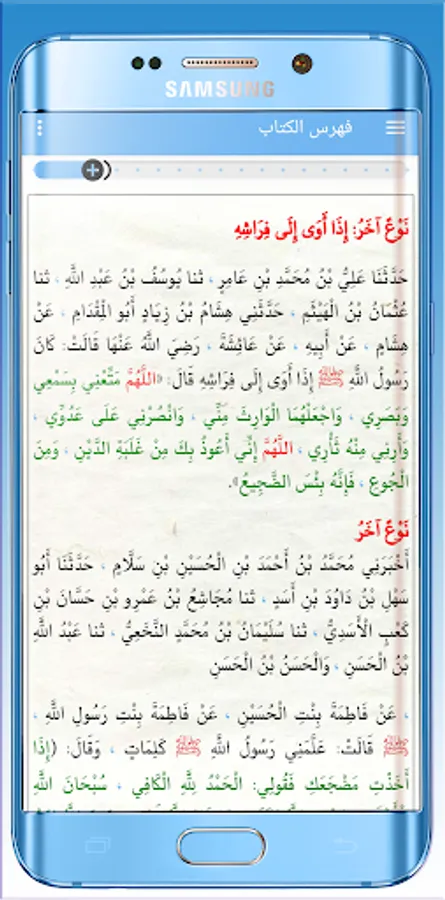 SAMSUNG
فهرس الكتاب
نَوْعٌ آخَرُ: إِذَا أَوَى إِلَى فِرَاشِهِ
حَدَّثَنَا عَلِيُّ بْنُ مُحَمَّدِ بْنِ عَامِرٍ ، ثنا يُوسُفُ بْنُ عَبْدِ اللَّهِ ، ثنا
عُثْمَانُ بْنُ الْهَيْثَمِ ، حَدَّثَنِي هِشَامُ بْنُ زِيَادٍ أَبُو الْمِقْدَامِ ، عَنْ
هِشَامٍ ، عَنْ أَبِيهِ ، عَنْ عَائِشَةَ ، رَضِيَ اللَّهُ عَنْهَا قَالَتْ: كَانَ
رَسُولُ اللَّهِ ﷺ إِذَا أَوَى إِلَى فِرَاشِهِ قَالَ: «اللَّهُمَّ مَتِّعْنِي بِسَمْعِي
وَبَصَرِي ، وَاجْعَلْهُمَا الْوَارِثَ مِنِّي ، وَانْصُرْنِي عَلَى عَدُوِّي ،
وَأَرِنِي مِنْهُ ثَأْرِي ، اللَّهُمَّ إِنِّي أَعُوذُ بِكَ مِنْ غَلَبَةِ الدَّيْنِ ، وَمِنَ
الْجُوعِ ، فَإِنَّهُ بِئْسَ الضَّجِيعُ».
نَوْعٌ آخَرُ
أَخْبَرَنِي مُحَمَّدُ بْنُ أَحْمَدَ بْنِ الْحُسَيْنِ بْنِ سَلَّامٍ ، حَدَّثَنَا أَبُو
سَهْلِ بْنُ دَاوُدَ بْنِ أَسَدٍ ، ثنا مُجَاشِعُ بْنُ عَمْرِو بْنِ حَسَّانَ بْنِ
كَعْبٍ الْأَسَدِيُّ ، ثنا سُلَيْمَانُ بْنُ مُحَمَّدٍ النَّخَعِيُّ ، ثنا عَبْدُ اللَّهِ
بْنُ الْحَسَنِ ، وَالْحَسَنُ بْنُ الْحَسَنِ
، عَنْ فَاطِمَةَ بِنْتِ الْحُسَيْنِ ، عَنْ فَاطِمَةَ بِنْتِ رَسُولِ اللَّهِ ،
ﷺ قَالَتْ: عَلَّمَنِي رَسُولُ اللَّهِ ﷺ كَلِمَاتٍ ، وَقَالَ: (إِذَا
أَخَذْتِ مَضْجَعَكِ فَقُولِي: الْحَمْدُ لِلَّهِ الْكَافِي ، سُبْحَانَ اللَّهِ